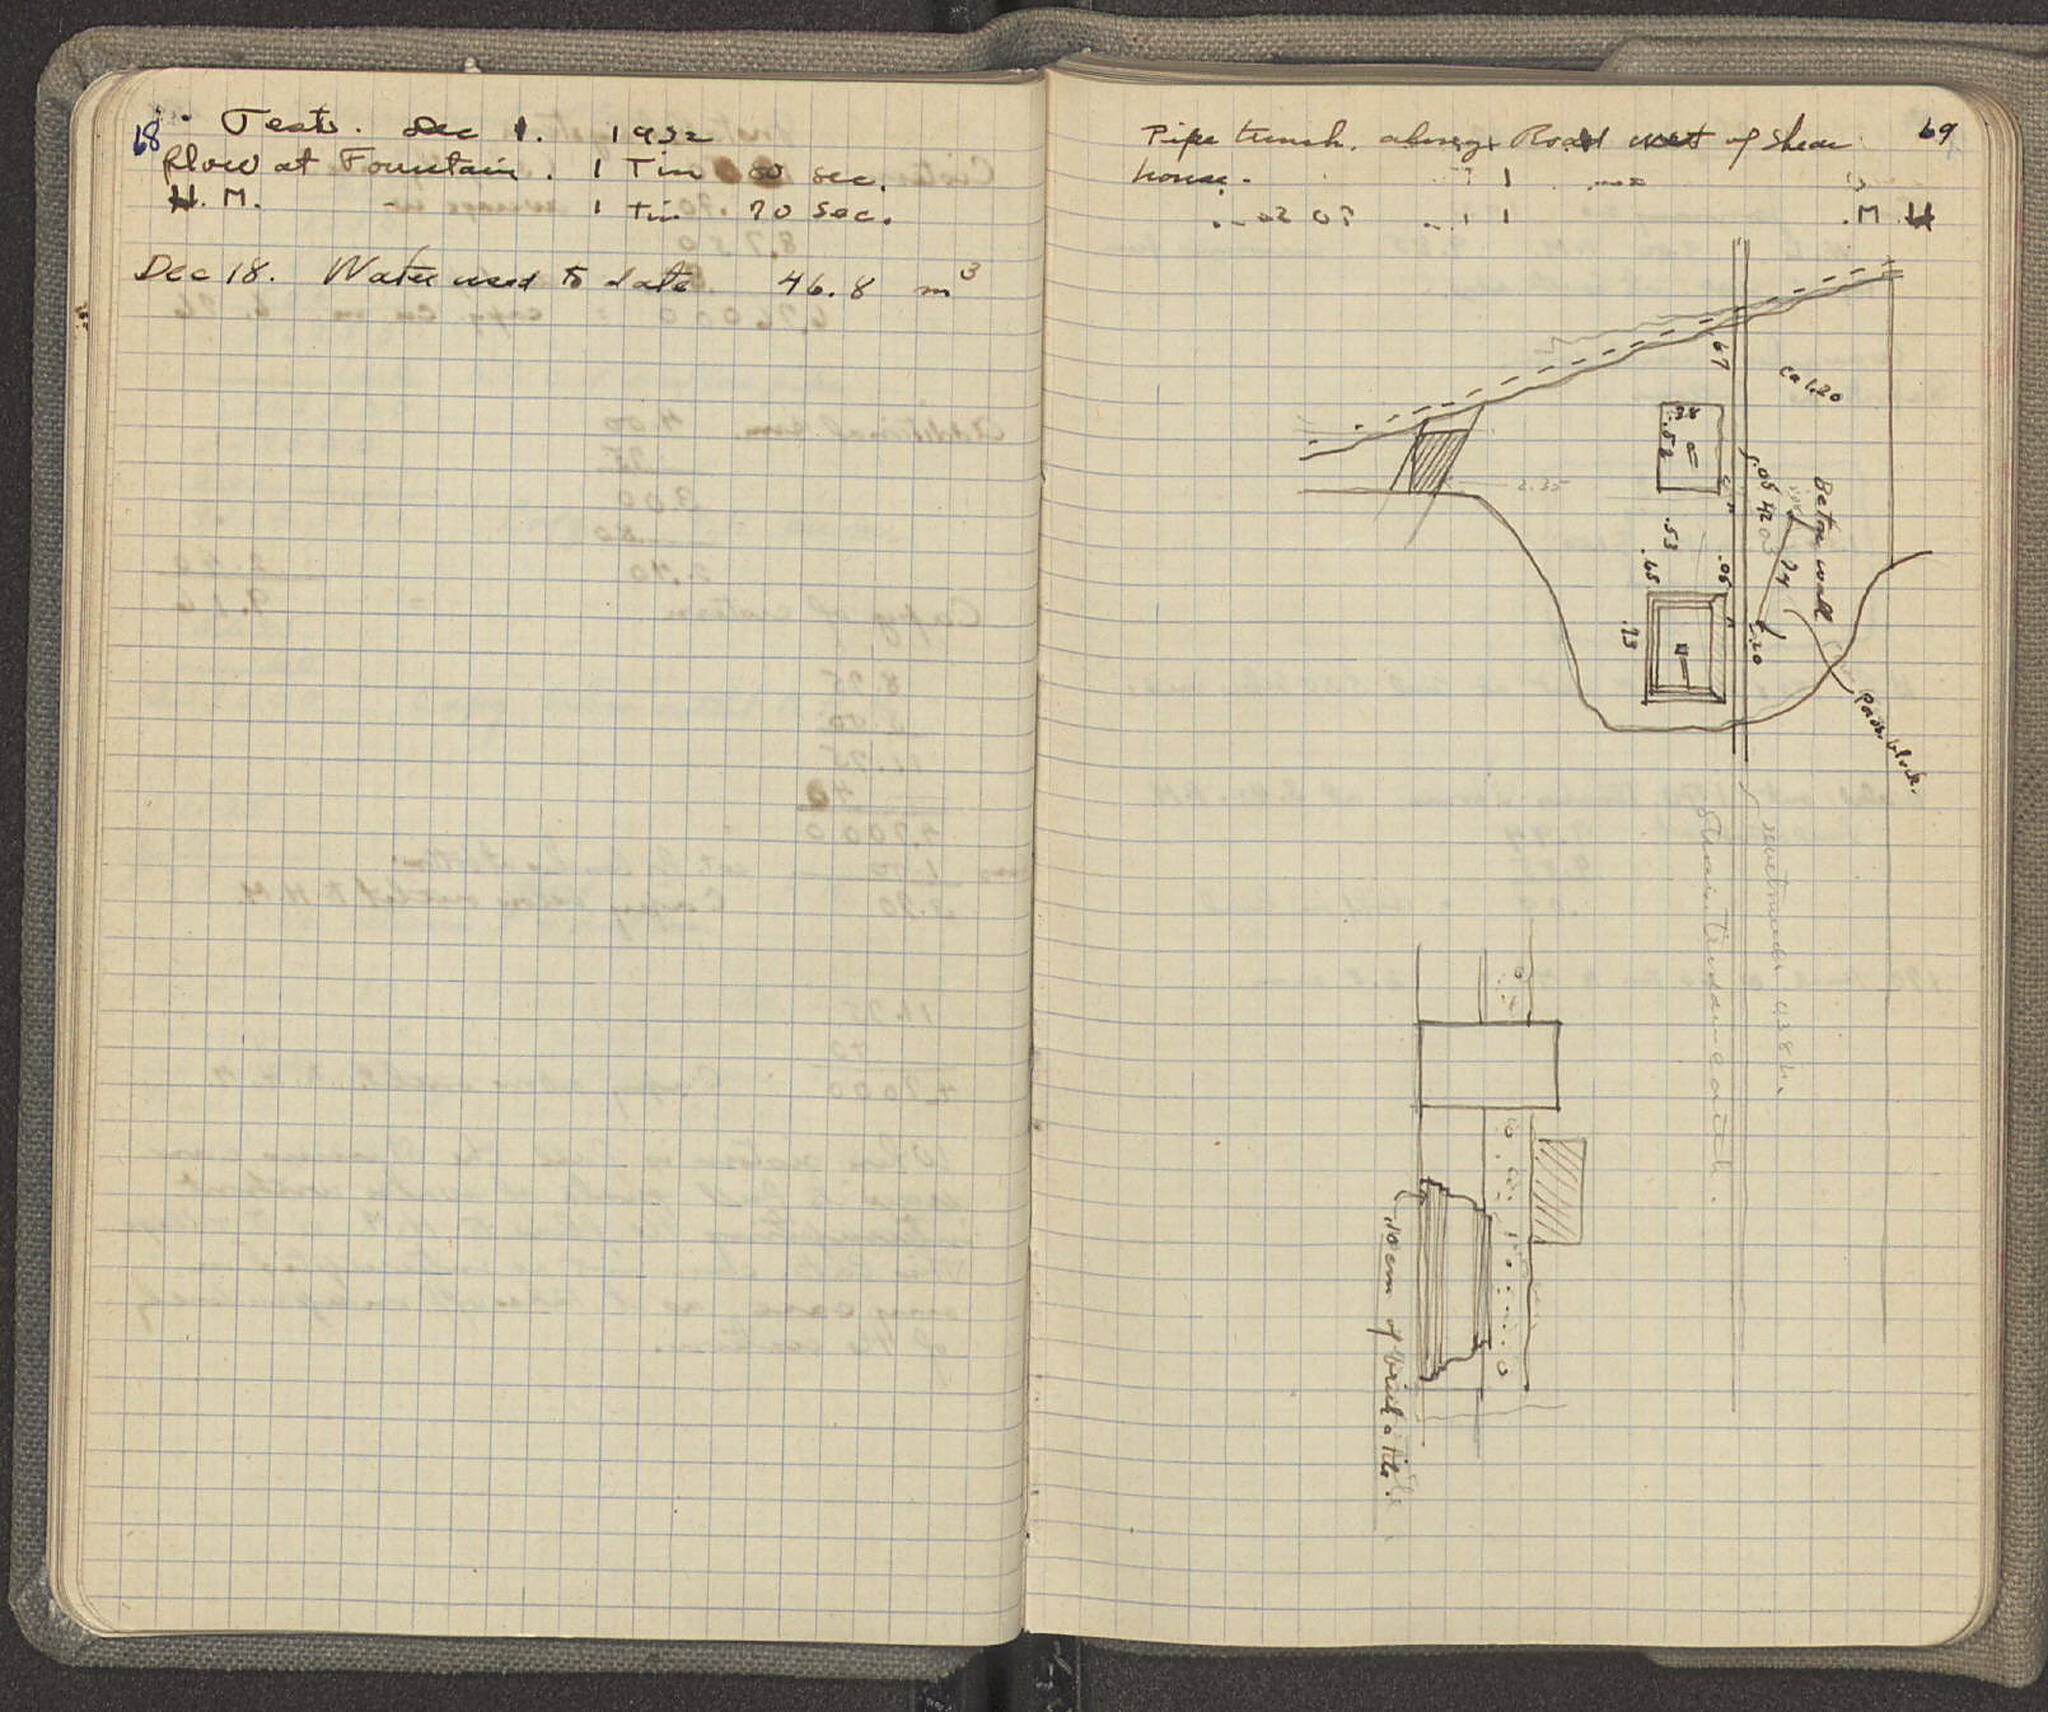 68
Tests. Dec 1. 1932
flow at Fountain. 1 Tin 60 sec.
H. M. 1 Tin 70 sec.
Dec 18. Water used to date 46.8 m³
69
Pipe trench. along Road west of Shear
house.
.67
ca 1.20
.38
.52
.05
.42
Beton wall
.53
.65
.05
.74
.93
.20
Poros block.
Stairs. Tiled
10 cm of brick & tile.